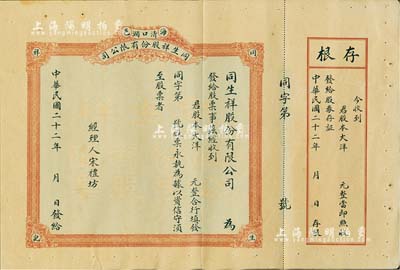 上海阳明拍卖
海清口國邑
同生祥股份有限公司
同
祥
生
記
同生祥股份有限公司 為
發給股票事茲經收到
君股本大洋 元整合行填發
同字第 號股票永執為據以資信守須
至股票者
經理人宋禮坊
中華民國二十二年 月 日發給
同字第 號
存根
今收到
君股本大洋 元整當即照收
發給股券存証
中華民國二十二年 月 日存根